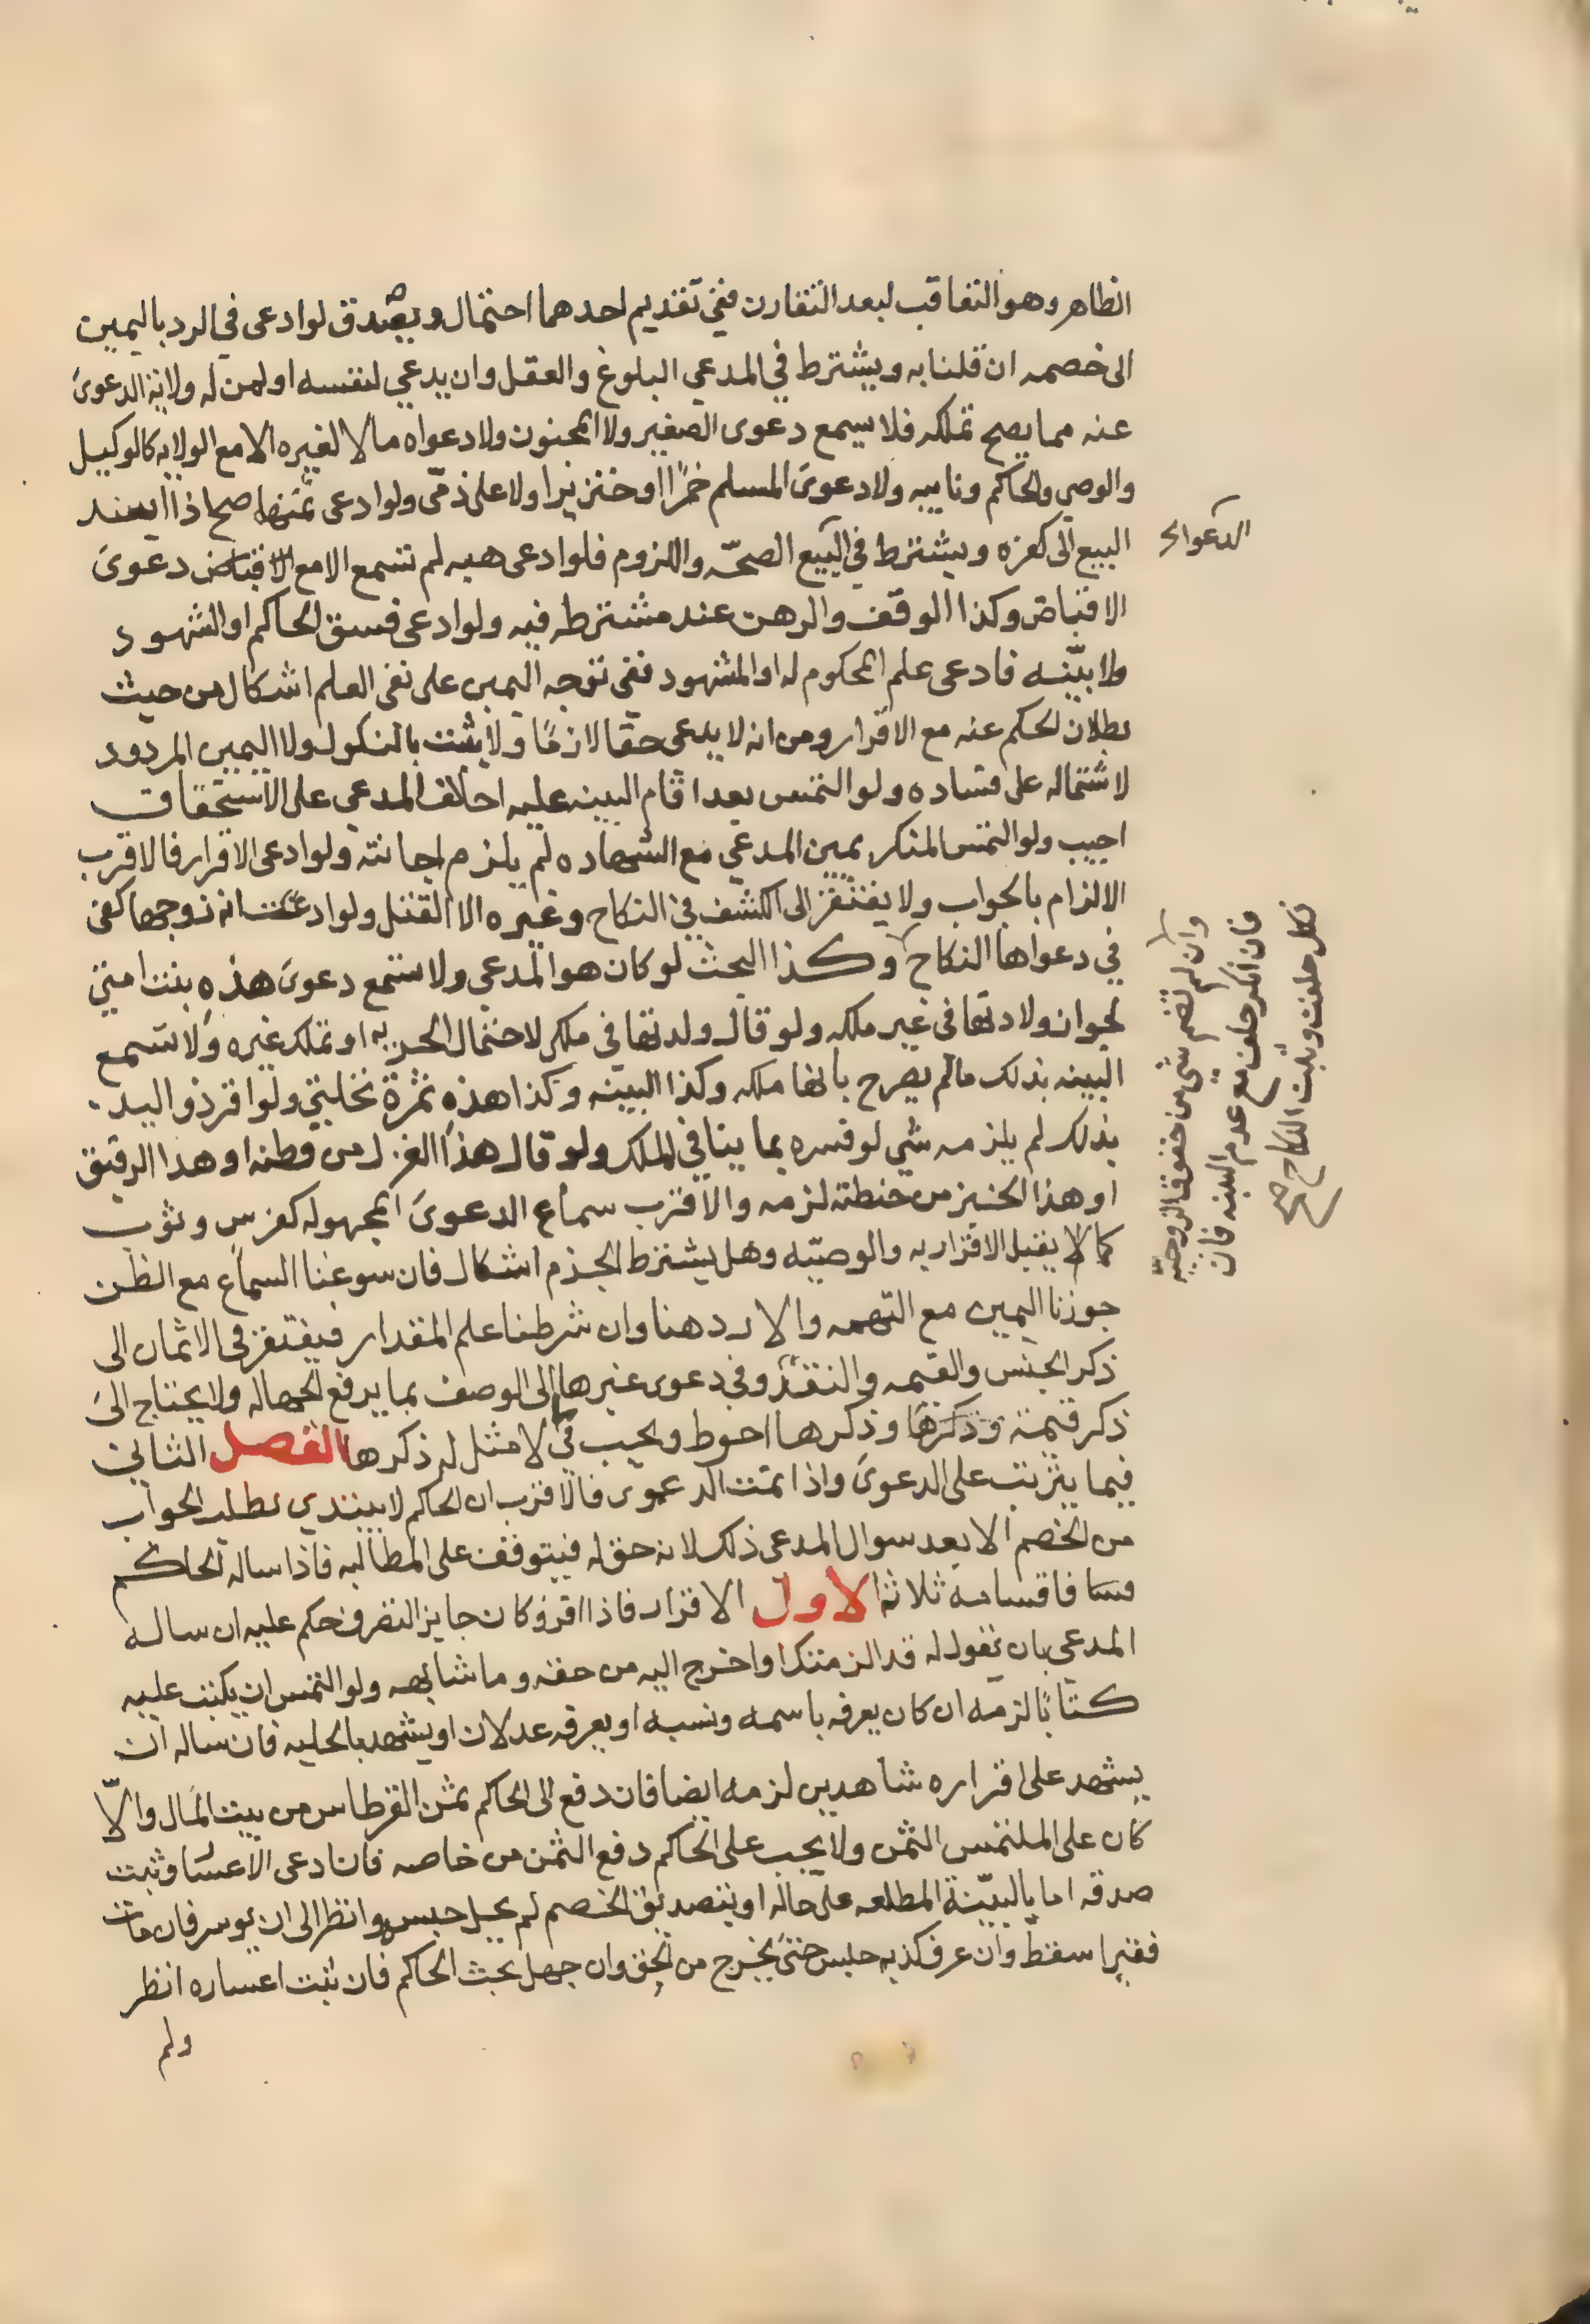 الظاهر وهو التعاقب لبعد التقارن ففي تقديم احدهما احتمال ويصدق لو ادعى في الرد باليمين
الى خصمه ان قلنا به ويشترط في المدعي البلوغ والعقل وان يدعي لنفسه او لمن له ولاية الدعوى
عنه مما يصح تملكه فلا يسمع دعوى الصغير ولا المجنون ولا دعواه مالا لغيره الا مع الولايه كالوكيل
والوصي والحاكم ونايبه ولا دعوى المسلم خمرًا او خنزيرا ولا على ذمّى ولو ادعى ثمنها صح اذا اسند
البيع الى كفره ويشترط في البيع الصحّه واللزوم فلو ادعى هبه لم تسمع الا مع الاقباض دعوى
الاقباض وكذا الوقف والرهن عند مشترطه فيه ولو ادعى فسق الحاكم او الشهود
ولا بيّنه فادعى علم المحكوم له او المشهود ففي توجه اليمين على نفى العلم اشكال من حيث
بطلان الحكم عنه مع الاقرار ومن انه لا يدعى حقا لازمًا ولا يثبت بالنكول ولا اليمين المردود
لاشتماله على فساده ولو التمس بعد اقام البينه عليه احلاف المدعي على الاستحقاق
اجيب ولو التمس المنكر يمين المدعي مع الشهاده لم يلزم اجابته ولو ادعى الاقرار فالاقرب
الالزام بالجواب ولا يفتقر الى الكشف في النكاح وغيره الا القتل ولو ادعت انه زوجها كفى
في دعواها النكاح وكذا البحث لو كان هو المدعي ولا تسمع دعوى هذه بنت امتي
لجواز ولادتها في غير ملكه ولو قال ولدتها في ملكي لاحتمال الحريه او تملك غيره ولا تسمع
البينه بذلك ما لم يصرح بانها ملكه وكذا البينه وكذا هذه ثمرة نخلتي ولو اقر ذو اليد
بذلك لم يلزمه شي لو فسره بما ينافي الملك ولو قال هذا الغزل من قطنه او هذا الدقيق
او هذا الخبز من حنطته لزمه والاقرب سماع الدعوى المجهوله كفرس وثوب
كما لا يقبل الاقرار به والوصيّه وهل يشترط الجزم اشكال فان سوغنا السماع مع الظن
جوزنا اليمين مع التهمه والا رد هنا وان شرطنا علم المقدار فيفتقر في الاثمان الى
ذكر الجنس والقيمه والنقد وفي دعوى غيرها الى الوصف بما يرفع الجهاله ولا يحتاج الى
ذكر قيمته وذكرها وذكرها احوط ويجب في لا مثل له ذكرها الفصل الثاني
فيما يترتب على الدعوى واذا تمت الدعوى فالاقرب ان الحاكم لا يبتدي بطلب الجواب
من الخصم الا بعد سوال المدعى ذلك لانه حق له فيتوقف على المطالبه فاذا ساله الحاكم
فاقسامه ثلاثة الاول الاقرار فاذا اقر وكان جايز التصرف حكم عليه ان ساله
المدعي بان يقول له قد الزمتك او اخرج اليه من حقه وما شابهه ولو التمس ان يكتب عليه
كتابًا لزمه ان كان يعرفه باسمه ونسبه او يعرفه عدلان او يشهد بالحليه فان ساله ان
يشهد على اقراره شاهدين لزمه ايضا فان دفع الى الحاكم ثمن القرطاس من بيت المال والّا
كان على الملتمس الثمن ولا يجب على الحاكم دفع الثمن من خاصه فان ادعى الاعسار وثبت
صدقه اما بالبيّنة المطلعه على حاله او بتصديق الخصم لم يحل حبسه وانظر الى ان يوسر فان مات
فقيرا سقط وان عرف كذبه حبس حتى يخرج من الحق وان جهل بحث الحاكم فان ثبت اعساره انظر
ولم
الدعوى
وان لم تضم شي من حقوق الزوجيّه
فان انكر حلف مع عدم البينه فان
نكل حلفت وثبت النكاح صح